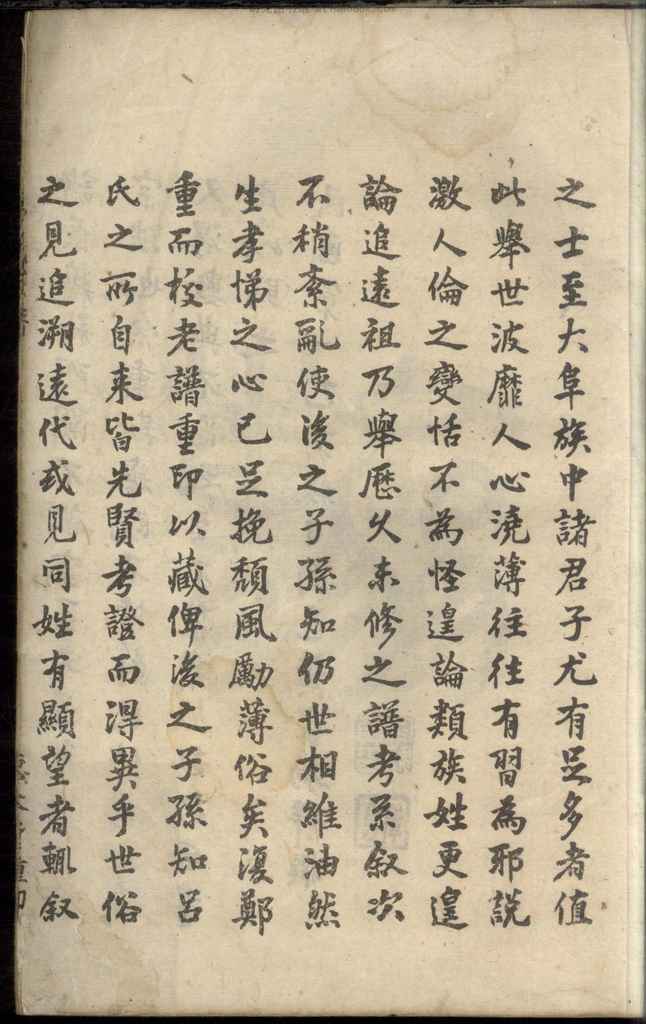 之士至大阜族中諸君子尤有足多者值
此舉世波靡人心澆薄往往有習為邪說
激人倫之變恬不為怪遑論類族姓更遑
論追遠祖乃舉歷久未修之譜考系叙次
不稍紊亂使後之子孫知仍世相維油然
生孝悌之心已足挽頹風勵薄俗矣復鄭
重而校老譜重印以藏俾後之子孫知吕
氏之所自来皆先賢考證而得異乎世俗
之見追溯遠代或見同姓有顯望者輒叙